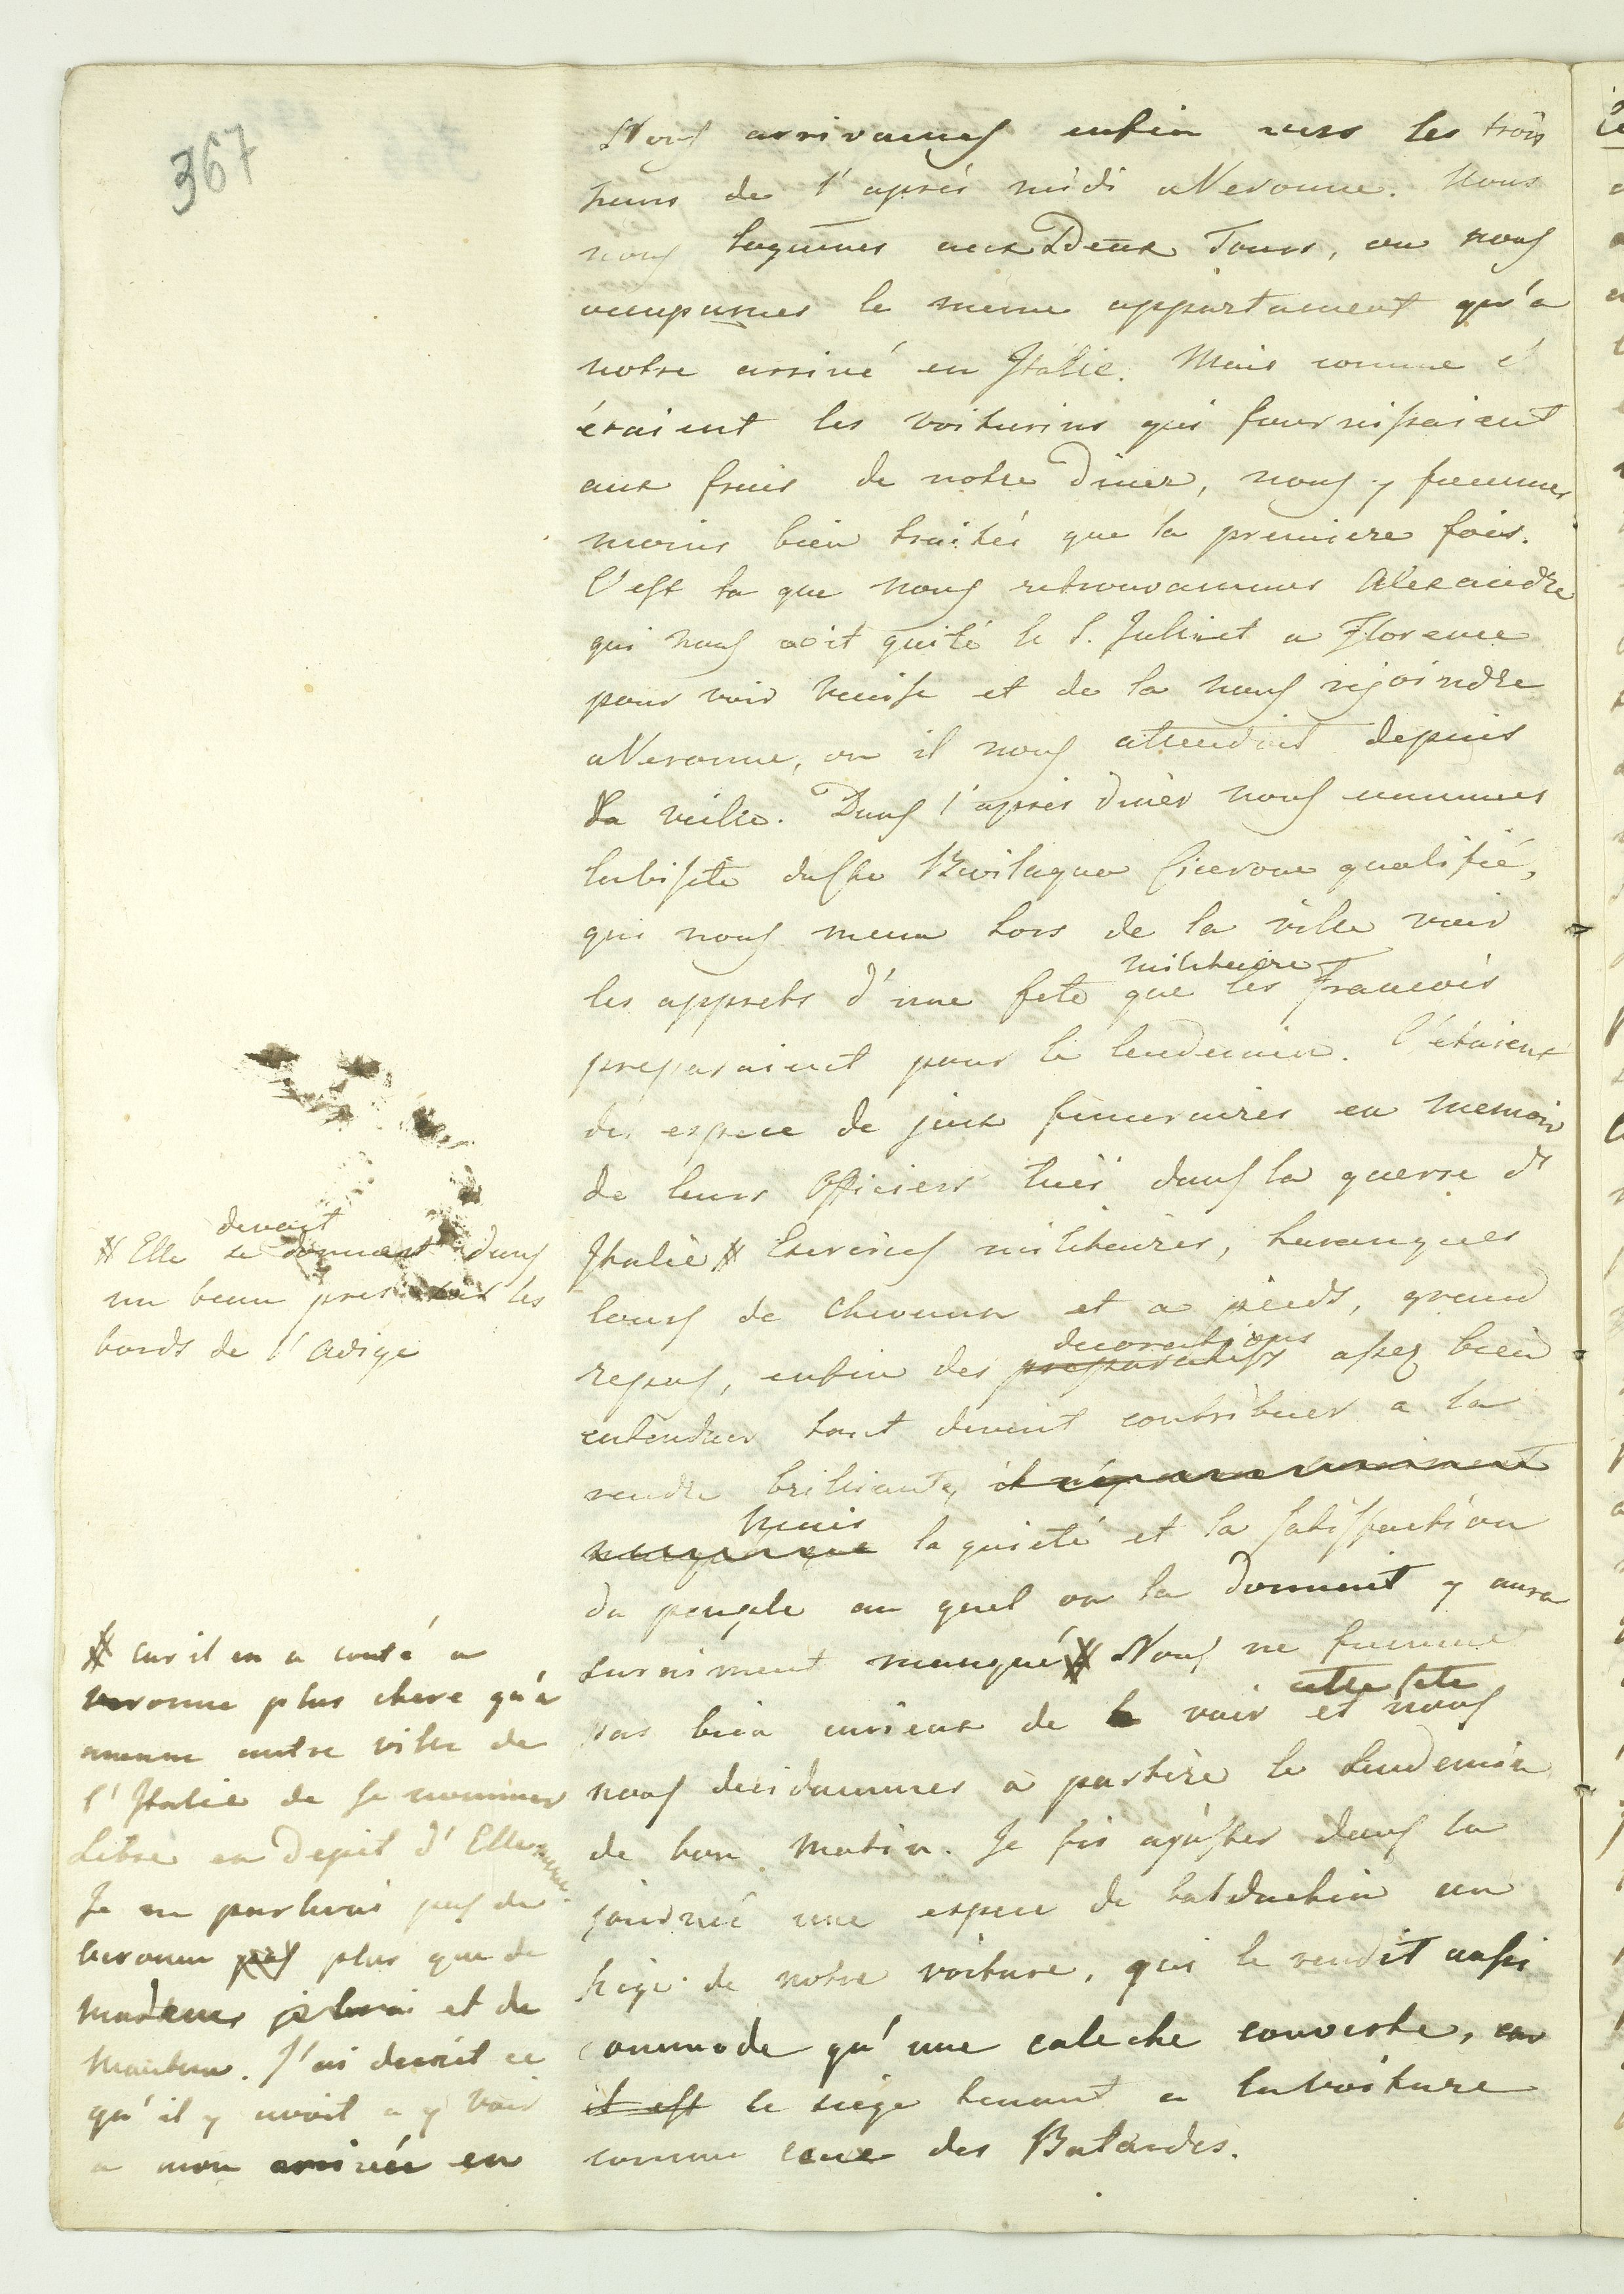 367
Nous arrivames enfin vers les trois
heurs de l'après midi a Veronne. Nous
nous logumes aux Deux Tours, ou nous
occupames le meme appartament qu'a
notre arrivé en Italie. Mais comme c'
étaient les voiturins qui fournissaient
aux frais de notre diner, nous y fummes
moins bien traités que la premiere fois.
C'est la que nous retrouvammes Alexandre
qui nous avoit quité le 1. Juliet a Florence
pour voir Venise et de la nous rejoindre
a Veronne, ou il nous attendoit depuis
la veille. Dans l'après diner nous eummes
la visite du Cte Bevilaqua Cicerone qualifié,
qui nous mena hors de la ville voir
les apprets d'une fete militaire que les Francois
preparaient pour le lendemain. C'étaient
des espece de jeux funeraires en memoir
de leurs Officiers tués dans la guerre d'
Italie # Exercices militaires, harangues
cours de chevaux et a pieds, grand
repas, enfin des preparatifs decorations assez bien
entendues tout devoit contribuer a la
rendre briliante, il
mais la gaieté et la satisfaction
du peuple au quel on la donnoit y aura
surement manqué # Nous ne fumme
pas bien curieux de voir cette fete et nous
nous decidammes a partire le lendemain
de bon matin. Je fis ajuster dans la
journée une espece de baldachin au
siege de notre voiture, qui le rendit aussi
commode qu'une caleche couverte, car
il est le siege tenant a la voiture
comme ceux des Batardes.
# Elle devait se donnent dans
un beau pres sur les
bords de l'Adige
# car il en a couté a
Veronne plus chere qu'a
aucune autre ville de
l'Italie de se nommer
Libre en Depit d'Elle meme.
Je ne parlerai pas de
Veronne pas plus que de
et de
Mantua. J'ai decrit ce
qu'il y avoit a y voir
a mon arrivée en